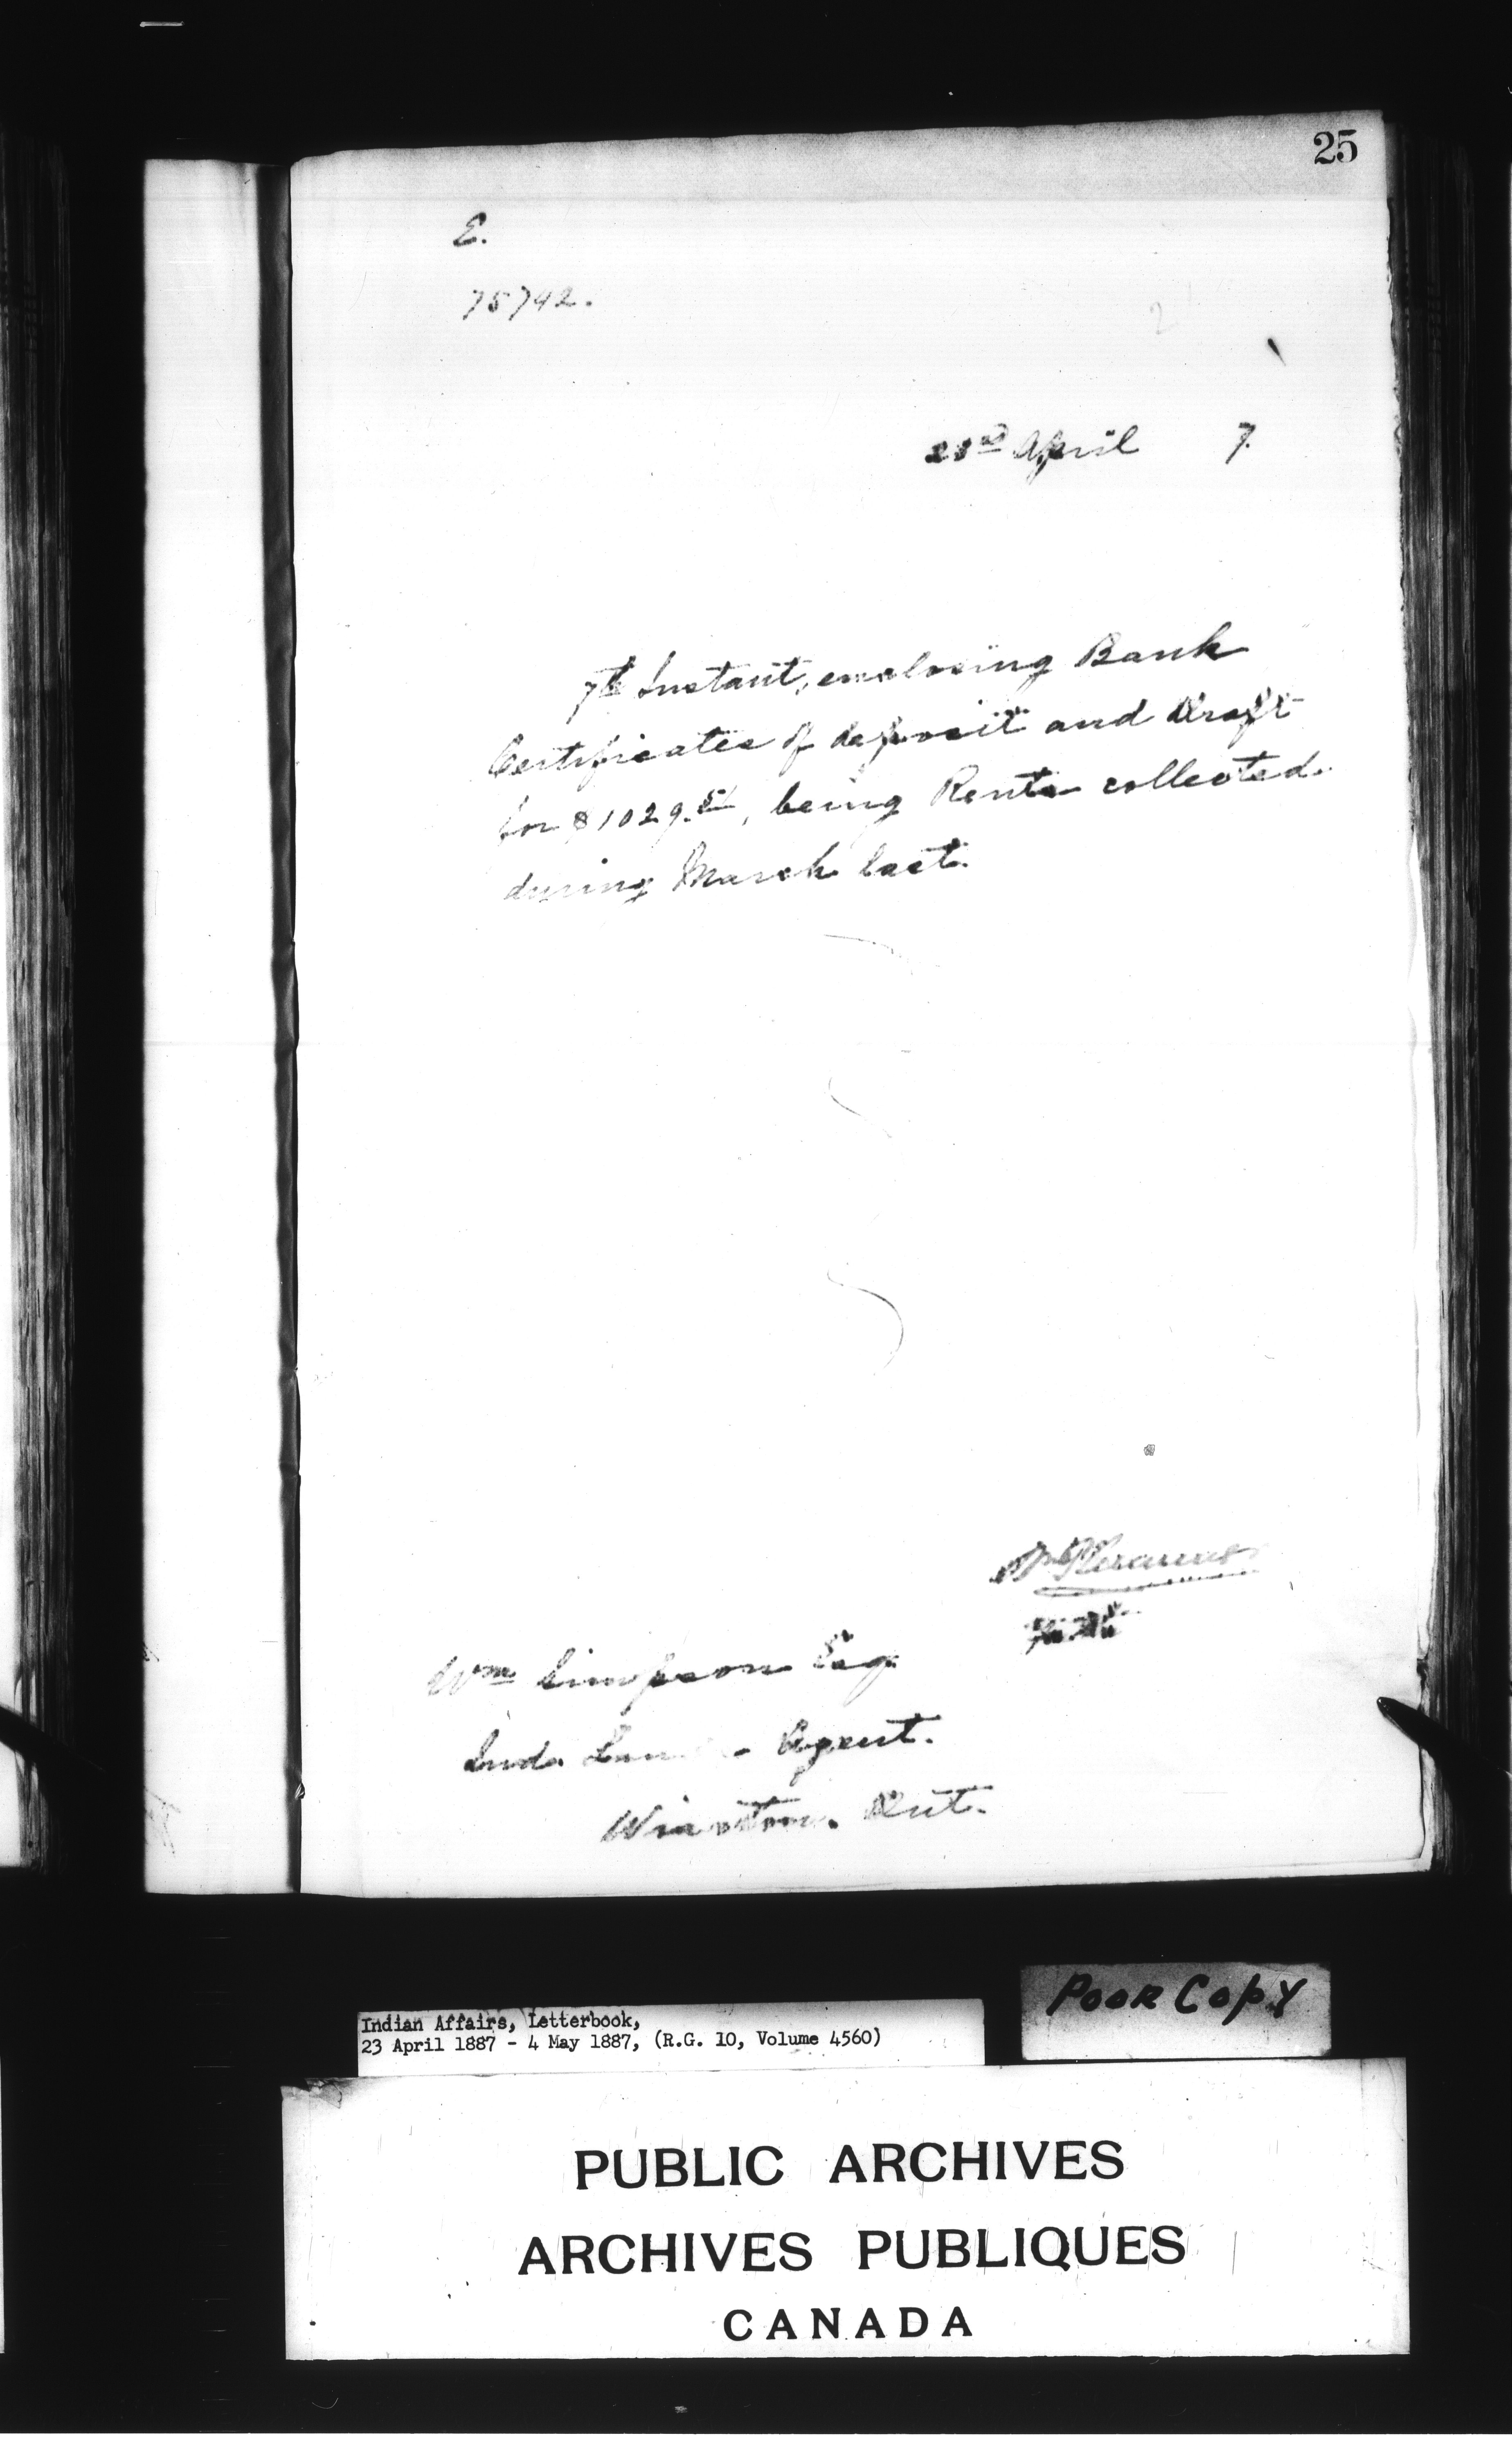 25
E.
75792.
23rd April 7.
7th Instant, enclosing Bank
Certificates of deposit and Draft
for $1029.51, being Rents collected
during March last.
Wm Simpson Esq
Inds Land Agent.
Wiarton. Ont.
Poor Copy
Indian Affairs, Letterbook,
23 April 1887 - 4 May 1887, (R.G. 10, Volume 4560)
PUBLIC ARCHIVES
ARCHIVES PUBLIQUES
CANADA